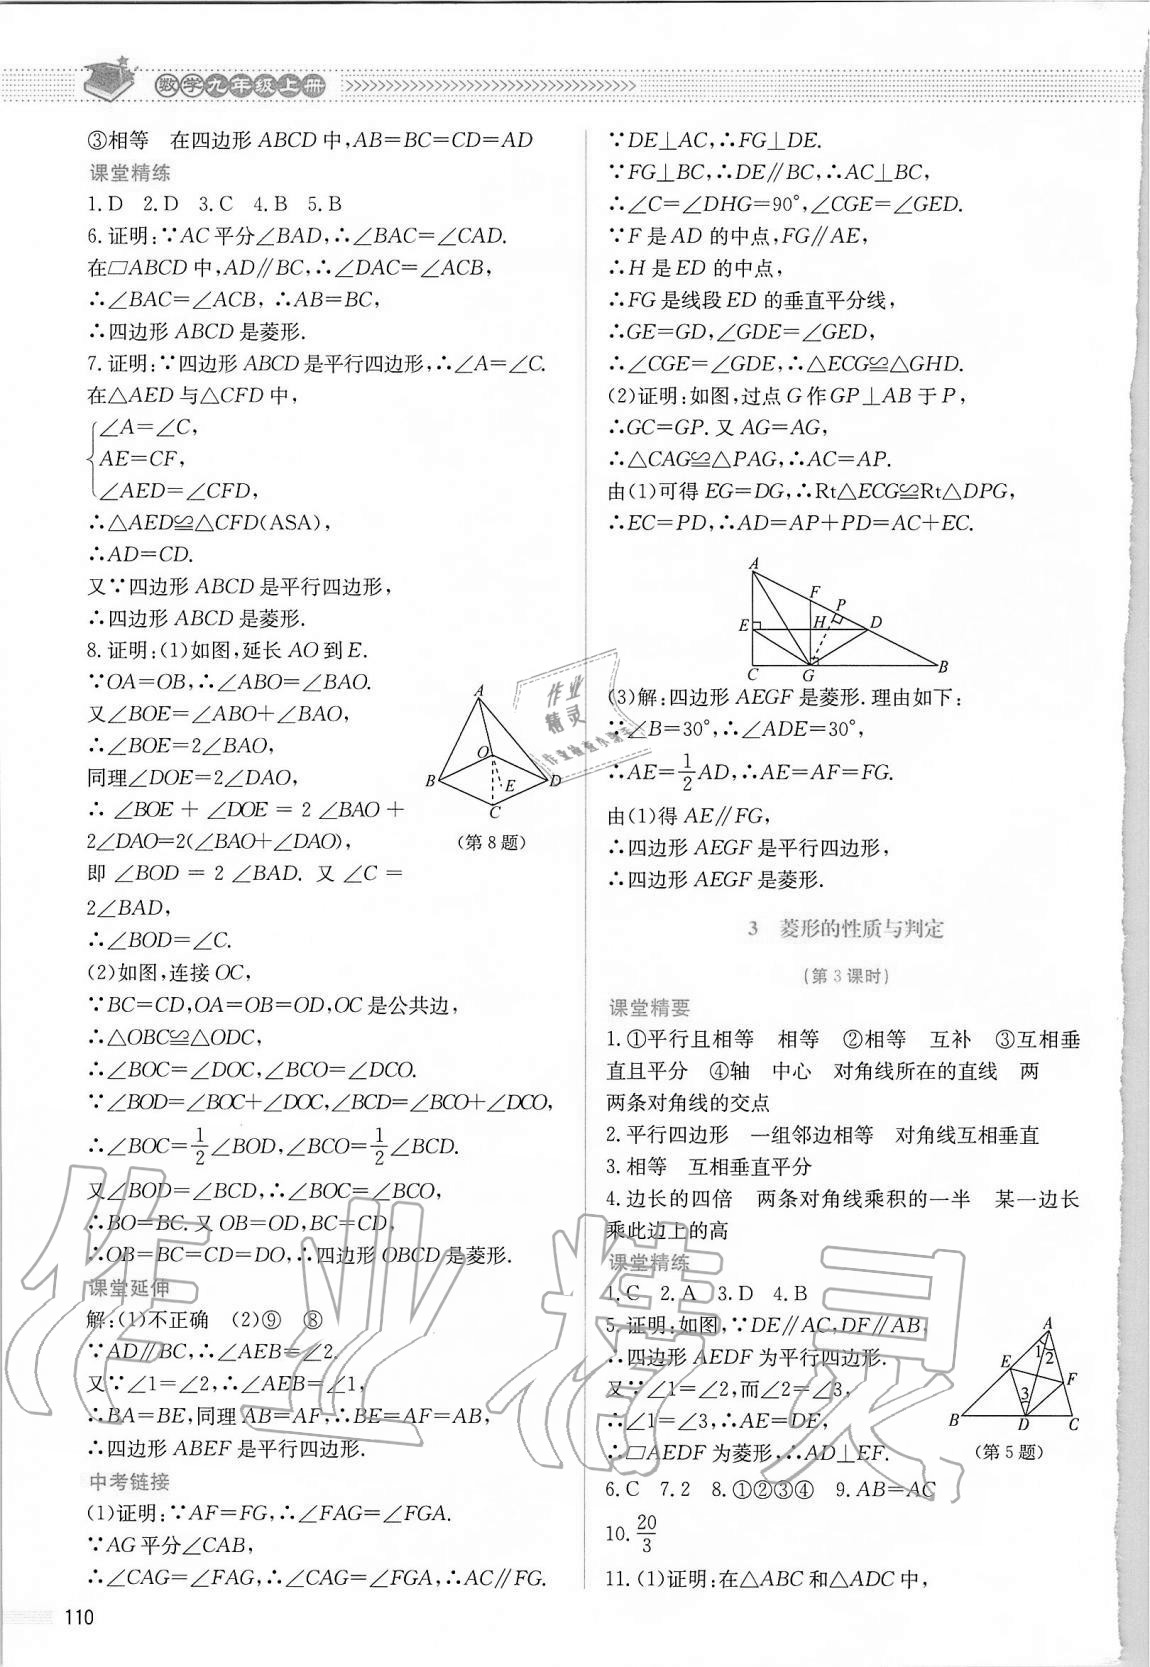 数学九年级上册
③相等　在四边形 ABCD 中,AB=BC=CD=AD
课堂精练
1.D　2.D　3.C　4.B　5.B
6.证明:∵AC平分∠BAD,∴∠BAC=∠CAD.
在▱ABCD中,AD∥BC,∴∠DAC=∠ACB,
∴∠BAC=∠ACB, ∴AB=BC,
∴四边形 ABCD 是菱形.
7.证明:∵四边形 ABCD是平行四边形,∴∠A=∠C.
在△AED与△CFD中,
∠A=∠C,
AE=CF,
∠AED=∠CFD,
∴△AED≌△CFD(ASA),
∴AD=CD.
又∵四边形 ABCD 是平行四边形,
∴四边形 ABCD 是菱形.
8.证明:(1)如图,延长 AO 到 E.
∵OA=OB,∴∠ABO=∠BAO.
又∠BOE=∠ABO+∠BAO,
∴∠BOE=2∠BAO,
同理∠DOE=2∠DAO,
∴ ∠BOE + ∠DOE = 2 ∠BAO +
2∠DAO=2(∠BAO+∠DAO),
即 ∠BOD = 2 ∠BAD. 又 ∠C =
2∠BAD,
∴∠BOD=∠C.
A
O
B
E
D
C
(第 8 题)
(2)如图,连接 OC,
∵BC=CD,OA=OB=OD,OC 是公共边,
∴△OBC≌△ODC,
∴∠BOC=∠DOC,∠BCO=∠DCO.
∵∠BOD=∠BOC+∠DOC,∠BCD=∠BCO+∠DCO,
∴∠BOC=1/2∠BOD,∠BCO=1/2∠BCD.
又∠BOD=∠BCD,∴∠BOC=∠BCO,
∴BO=BC.又 OB=OD,BC=CD,
∴OB=BC=CD=DO,∴四边形 OBCD 是菱形.
课堂延伸
解:(1)不正确　(2)⑨　⑧
∵AD∥BC,∴∠AEB=∠2.
又∵∠1=∠2,∴∠AEB=∠1,
∴BA=BE,同理 AB=AF,∴BE=AF=AB,
∴四边形 ABEF 是平行四边形.
中考链接
(1)证明:∵AF=FG,∴∠FAG=∠FGA.
∵AG平分∠CAB,
∴∠CAG=∠FAG,∴∠CAG=∠FGA,∴AC∥FG.
110
∵DE⊥AC,∴FG⊥DE.
∵FG⊥BC,∴DE∥BC,∴AC⊥BC,
∴∠C=∠DHG=90°,∠CGE=∠GED.
∵F 是 AD 的中点,FG∥AE,
∴H 是 ED 的中点,
∴FG 是线段 ED 的垂直平分线,
∴GE=GD,∠GDE=∠GED,
∴∠CGE=∠GDE,∴△ECG≌△GHD.
(2)证明:如图,过点 G 作 GP⊥AB 于 P,
∴GC=GP. 又 AG=AG,
∴△CAG≌△PAG,∴AC=AP.
由(1)可得 EG=DG,∴Rt△ECG≌Rt△DPG,
∴EC=PD,∴AD=AP+PD=AC+EC.
A
F
P
E
H
D
C
G
B
(3)解:四边形 AEGF 是菱形. 理由如下:
∵∠B=30°,∴∠ADE=30°,
∴AE=1/2AD,∴AE=AF=FG.
由(1)得 AE∥FG,
∴四边形 AEGF 是平行四边形,
∴四边形 AEGF 是菱形.
3　菱形的性质与判定
(第 3 课时)
课堂精要
1.①平行且相等　相等　②相等　互补　③互相垂
直且平分　④轴　中心　对角线所在的直线　两
两条对角线的交点
2.平行四边形　一组邻边相等　对角线互相垂直
3.相等　互相垂直平分
4.边长的四倍　两条对角线乘积的一半　某一边长
乘此边上的高
课堂精练
1.C　2.A　3.D　4.B
5.证明:如图,∵DE∥AC,DF∥AB,
∴四边形 AEDF 为平行四边形.
又∵∠1=∠2,而∠2=∠3,
∴∠1=∠3,∴AE=DE,
∴▱AEDF 为菱形,∴AD⊥EF.
A
1
2
E
F
3
B
D
C
(第 5 题)
6.C　7.2　8.①②③④　9.AB=AC
10. 20/3
11.(1)证明:在△ABC 和△ADC 中,
作业
精灵
作业精灵